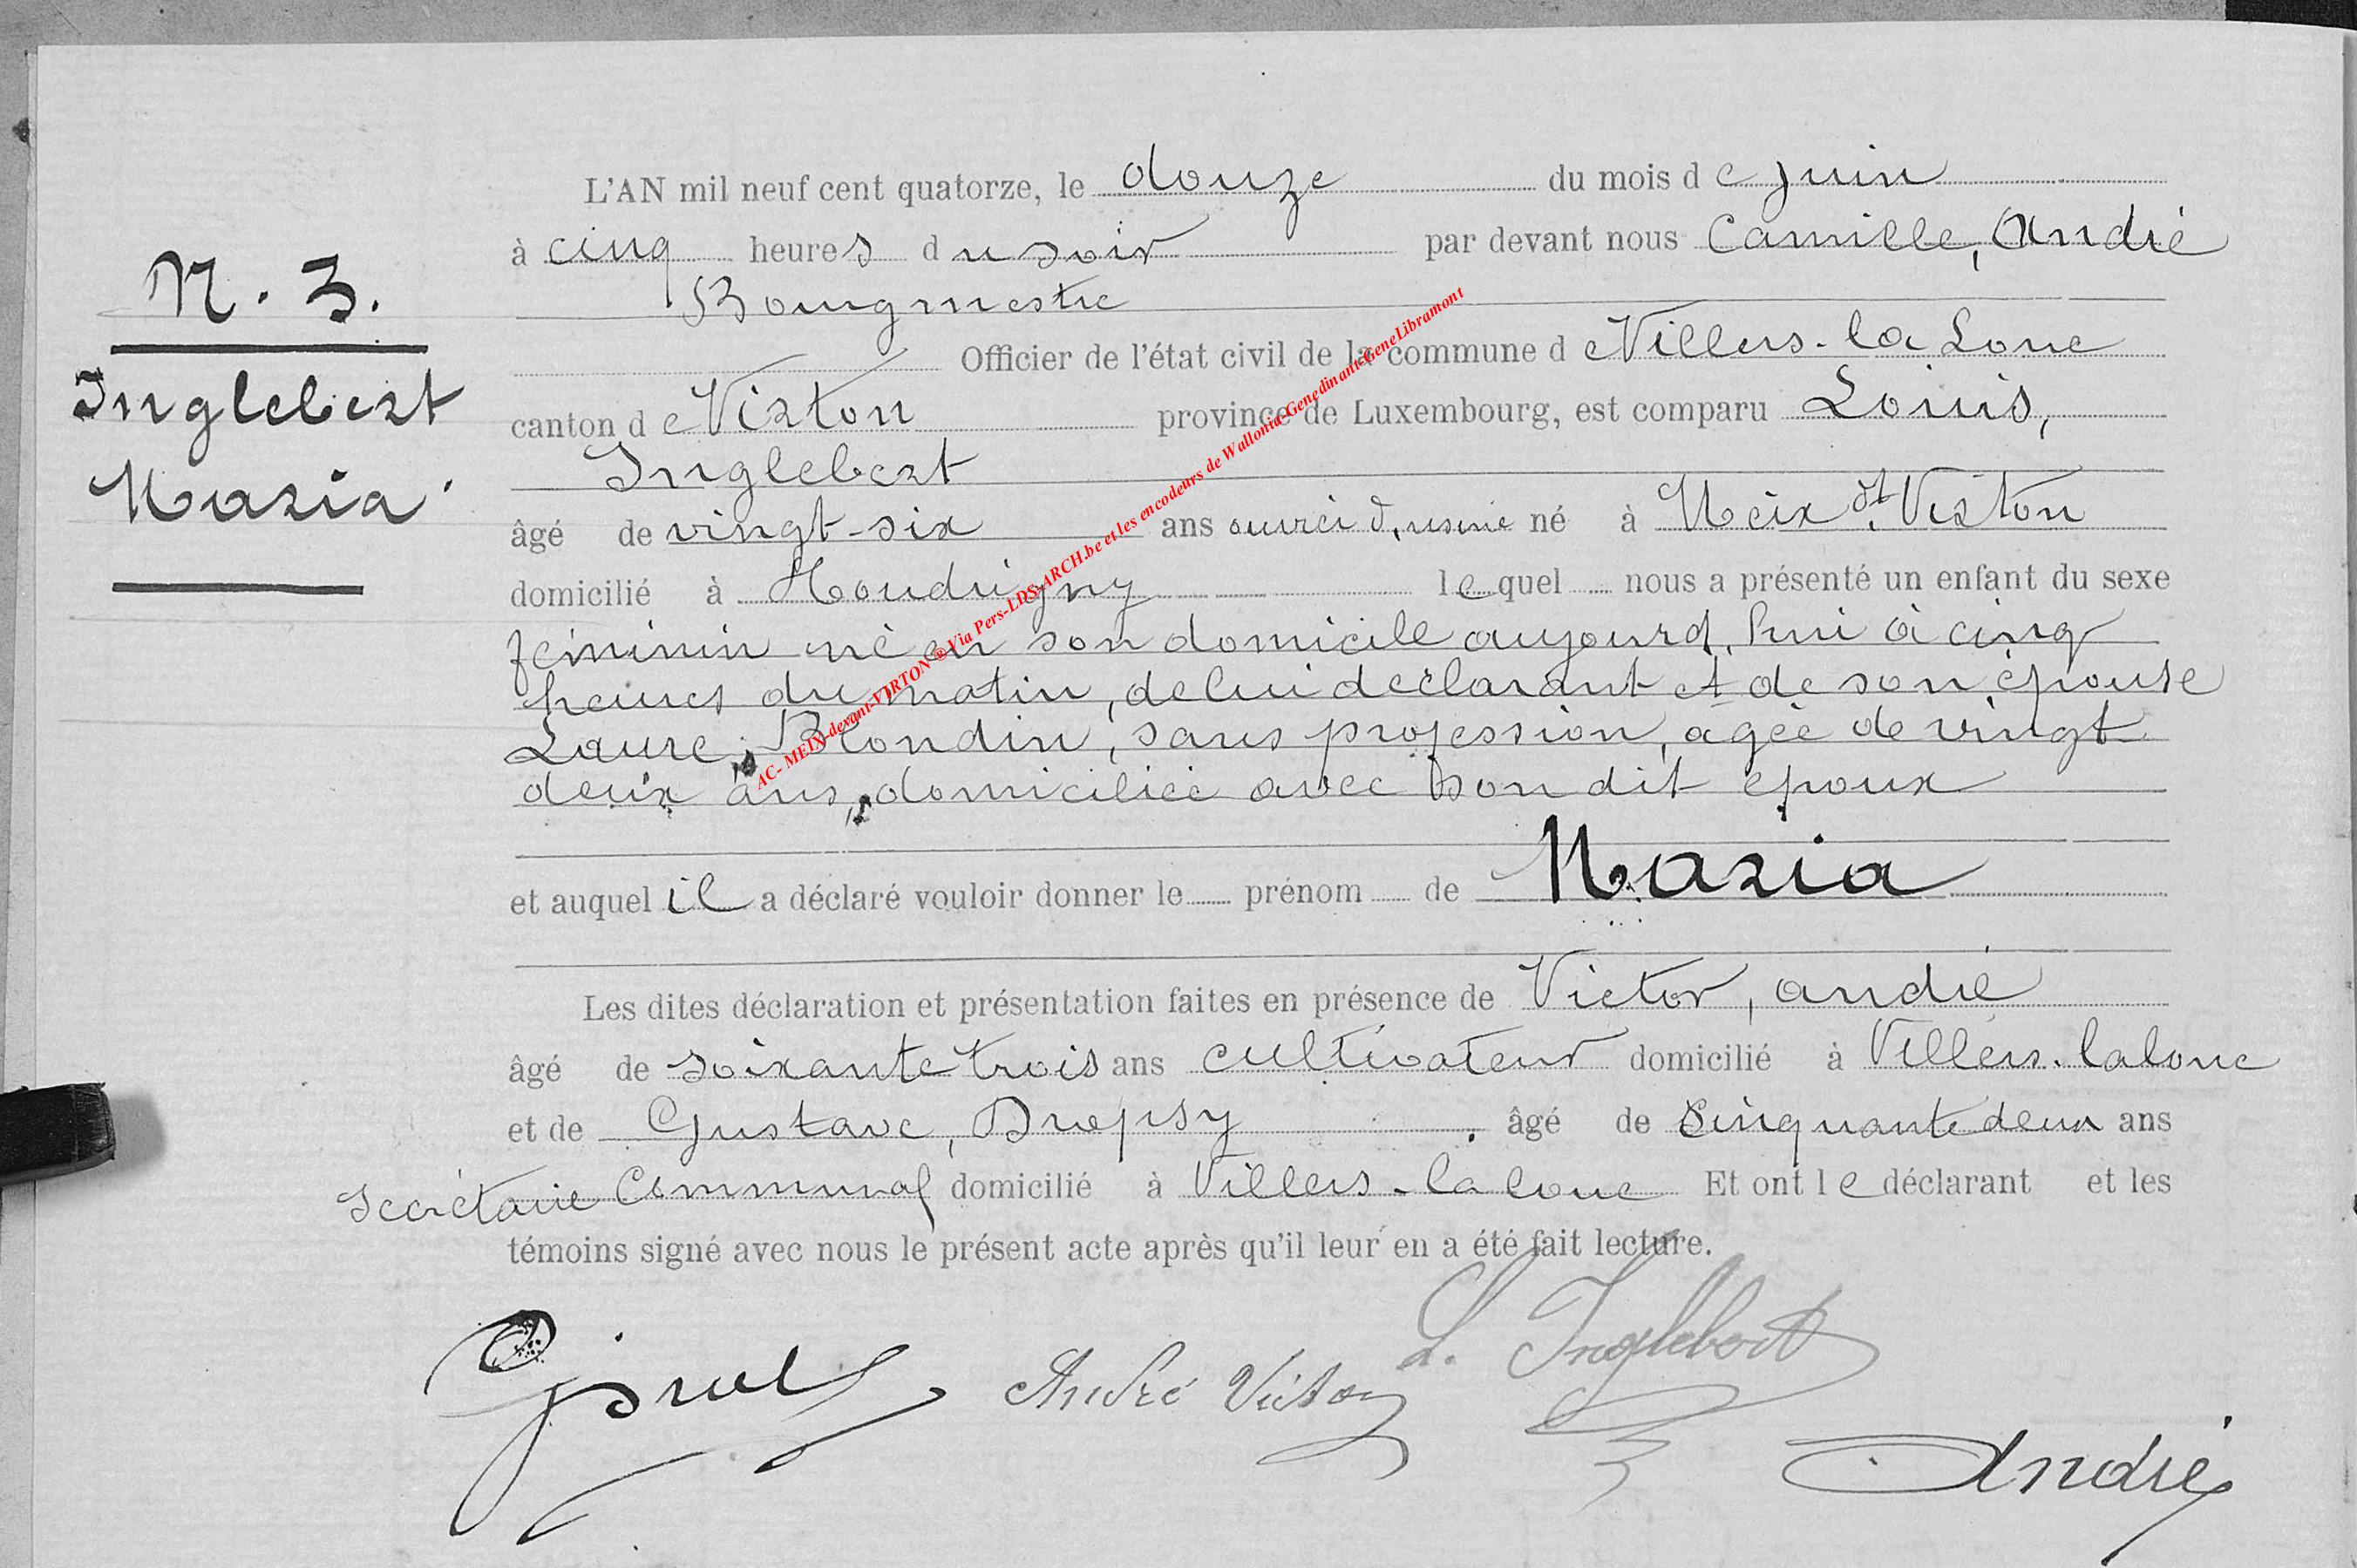 N. 3.
Inglebert
Maria
L'AN mil neuf cent quatorze, le douze du mois de juin
à cinq heures du soir par devant nous Camille, André
Bourgmestre
Officier de l'état civil de la commune de Villers-la Loue
canton de Virton province de Luxembourg, est comparu Louis,
Inglebert
âgé de vingt-six ans ouvrier d'usine né à Meix dt Virton
domicilié à Houdrigny lequel nous a présenté un enfant du sexe
féminin né en son domicile aujourd'hui à cinq
heures du matin, de lui déclarant et de son épouse
Laure, Blondin, sans profession, agée de vingt
deux ans, domiciliée avec son dit époux
et auquel il a déclaré vouloir donner le prénom de Maria
Les dites déclaration et présentation faites en présence de Victor, André
âgé de soixante trois ans cultivateur domicilié à Villers-laloue
et de Gustave, âgé de Cinquante deux ans
Secrétaire Communal domicilié à Villers-la loue Et ont le déclarant et les
témoins signé avec nous le présent acte après qu'il leur en a été fait lecture.
L. Inglebert
André Victor
André
AC- MEIX-devant-VIRTON ® Via Pers-LDS-ARCH.be et les encodeurs de Wallonia-Genedinant-GeneLibramont